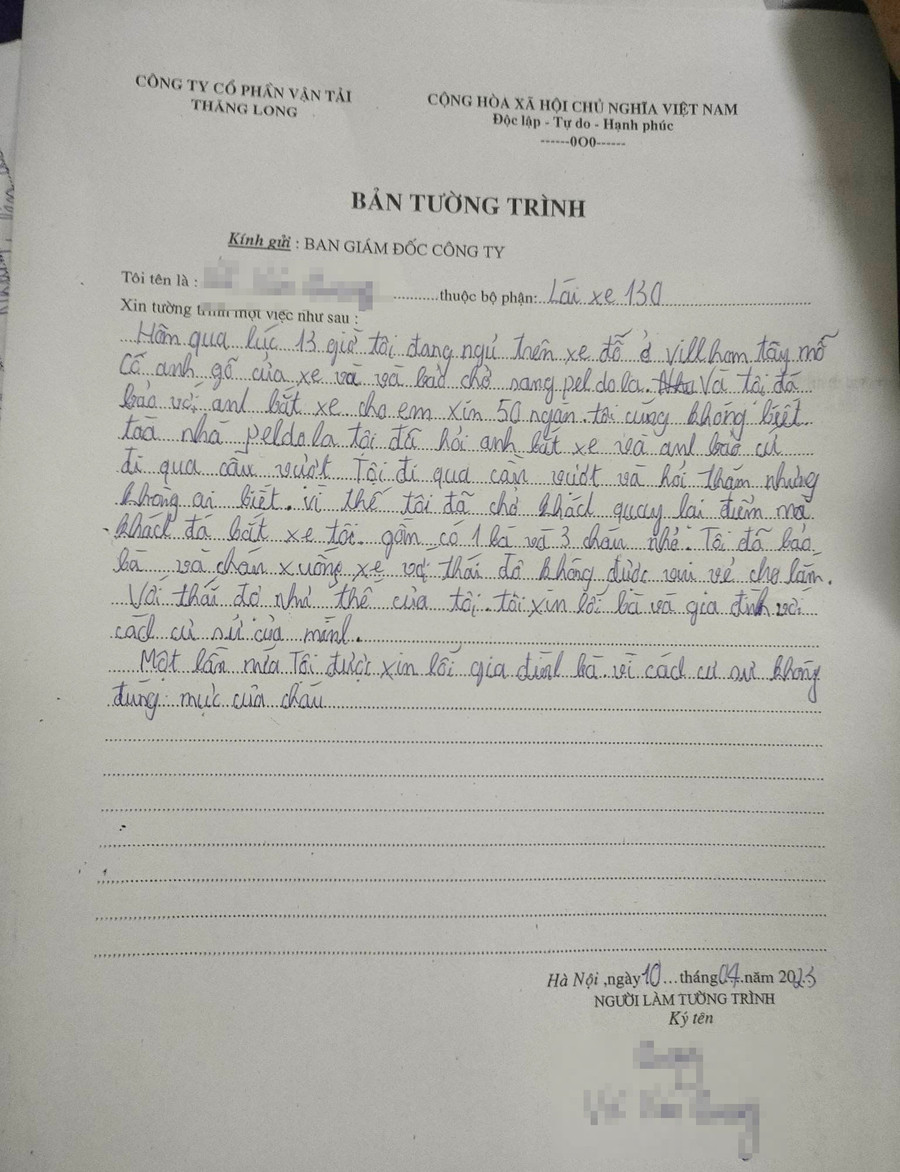 CÔNG TY CỔ PHẦN VẬN TẢI
THĂNG LONG
CỘNG HÒA XÃ HỘI CHỦ NGHĨA VIỆT NAM
Độc lập - Tự do - Hạnh phúc
------0O0------
BẢN TƯỜNG TRÌNH
Kính gửi : BAN GIÁM ĐỐC CÔNG TY
Tôi tên là : ..........thuộc bộ phận: Lái xe 130
Xin tường trình một việc như sau :
Hôm qua lúc 13 giờ tôi đang ngủ trên xe đỗ ở villham tây mỗ
Có anh gõ cửa xe và và bảo chở sang peldola. Và tôi đã
bảo với anh bắt xe cho em xin 50 ngàn. tôi cũng không biết
toà nhà peldola tôi đã hỏi anh bắt xe và anh bảo cứ
đi qua cầu vượt. Tôi đi qua cầu vượt và hỏi thăm nhưng
không ai biết. vì thế tôi đã chở khách quay lại điểm mà
khách đã bắt xe tôi. gồm có 1 bà và 3 cháu nhỏ. Tôi đã bảo
bà và cháu xuống xe với thái độ không được vui vẻ cho lắm.
Với thái độ như thế của tôi. tôi xin lỗi bà và gia đình với
cách cư sử của mình.
Một lần nữa Tôi được xin lỗi gia đình bà vì cách cư sư không
đúng mực của cháu
Hà Nội ,ngày 10 ...tháng 04.năm 2023
NGƯỜI LÀM TƯỜNG TRÌNH
Ký tên